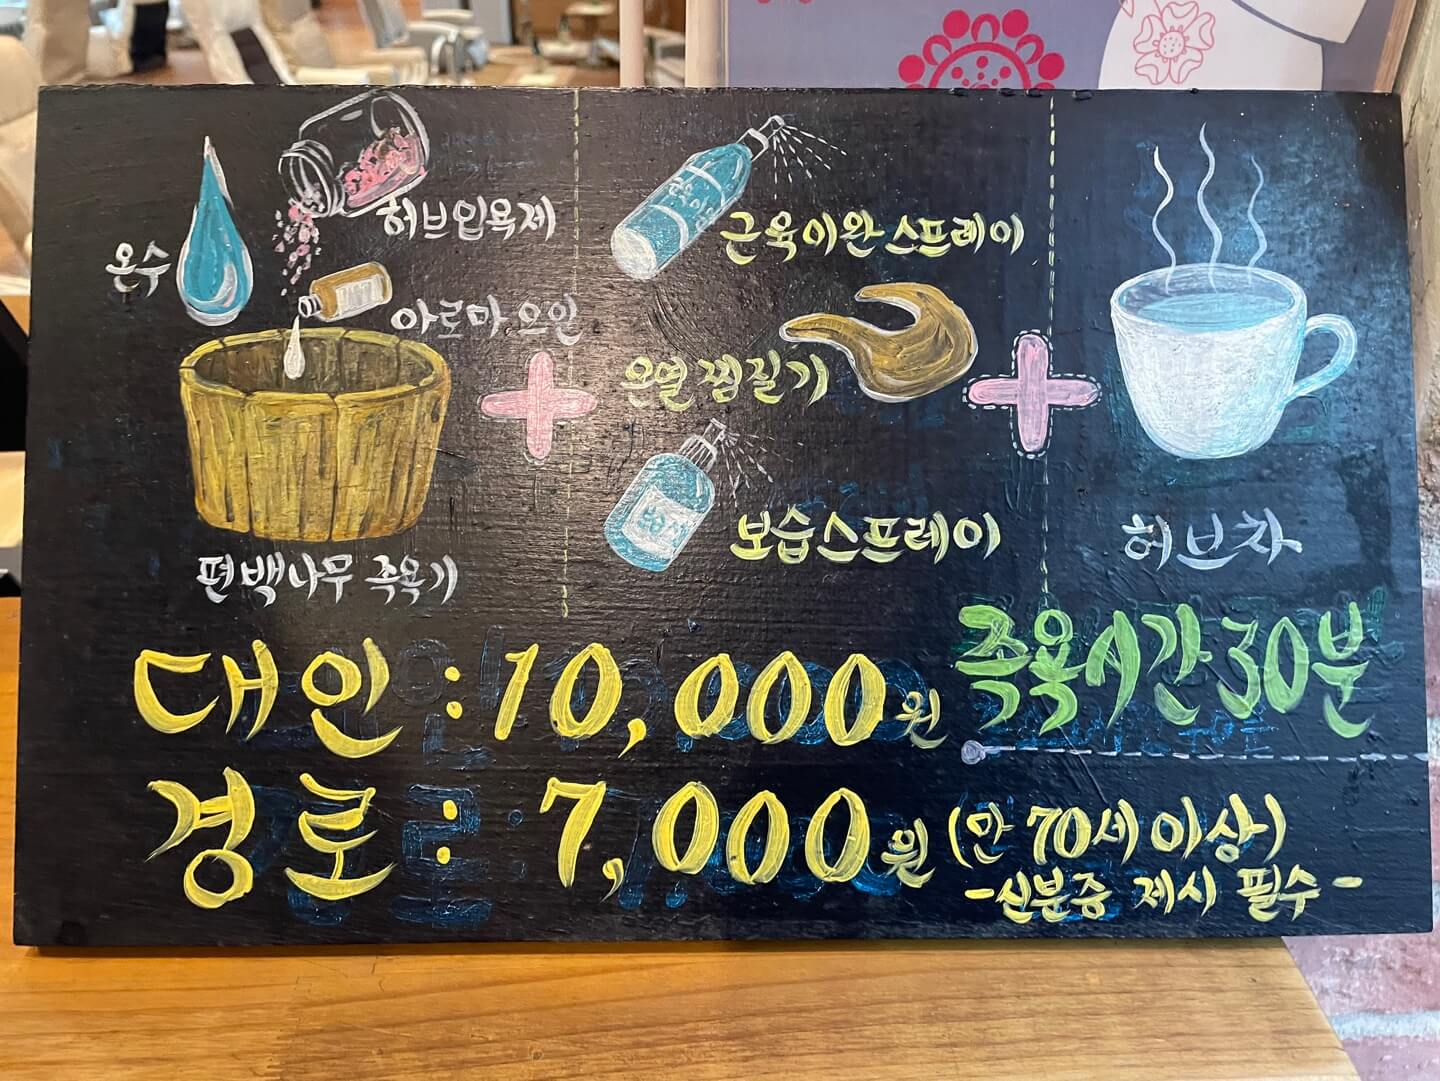 온수
허브입욕제
아로마 오일
편백나무 족욕기
근육이완
근육이완 스프레이
온열 찜질기
보습
보습스프레이
허브차
족욕시간 30분
대인 : 10,000원
경로 : 7,000원 (만 70세 이상)
-신분증 제시 필수-